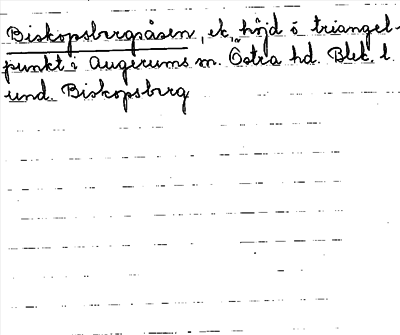 Biskopsbergsåsen, ek. höjd o triangel-
punkt i Augerums sn. Östra hd. Blek. l.
und. Biskopsberg